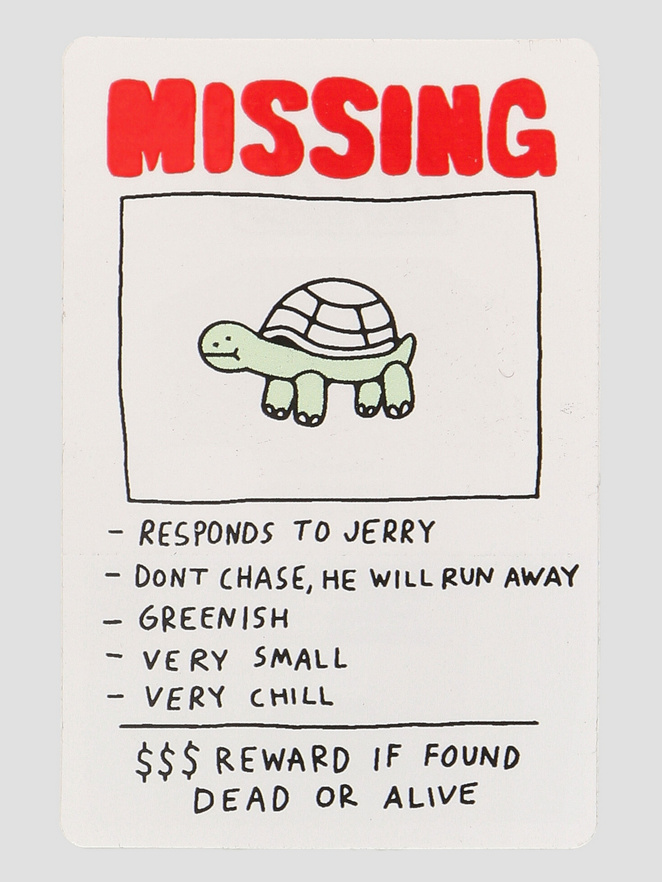 MISSING
- RESPONDS TO JERRY
- DONT CHASE, HE WILL RUN AWAY
- GREENISH
- VERY SMALL
- VERY CHILL
$$$ REWARD IF FOUND
DEAD OR ALIVE